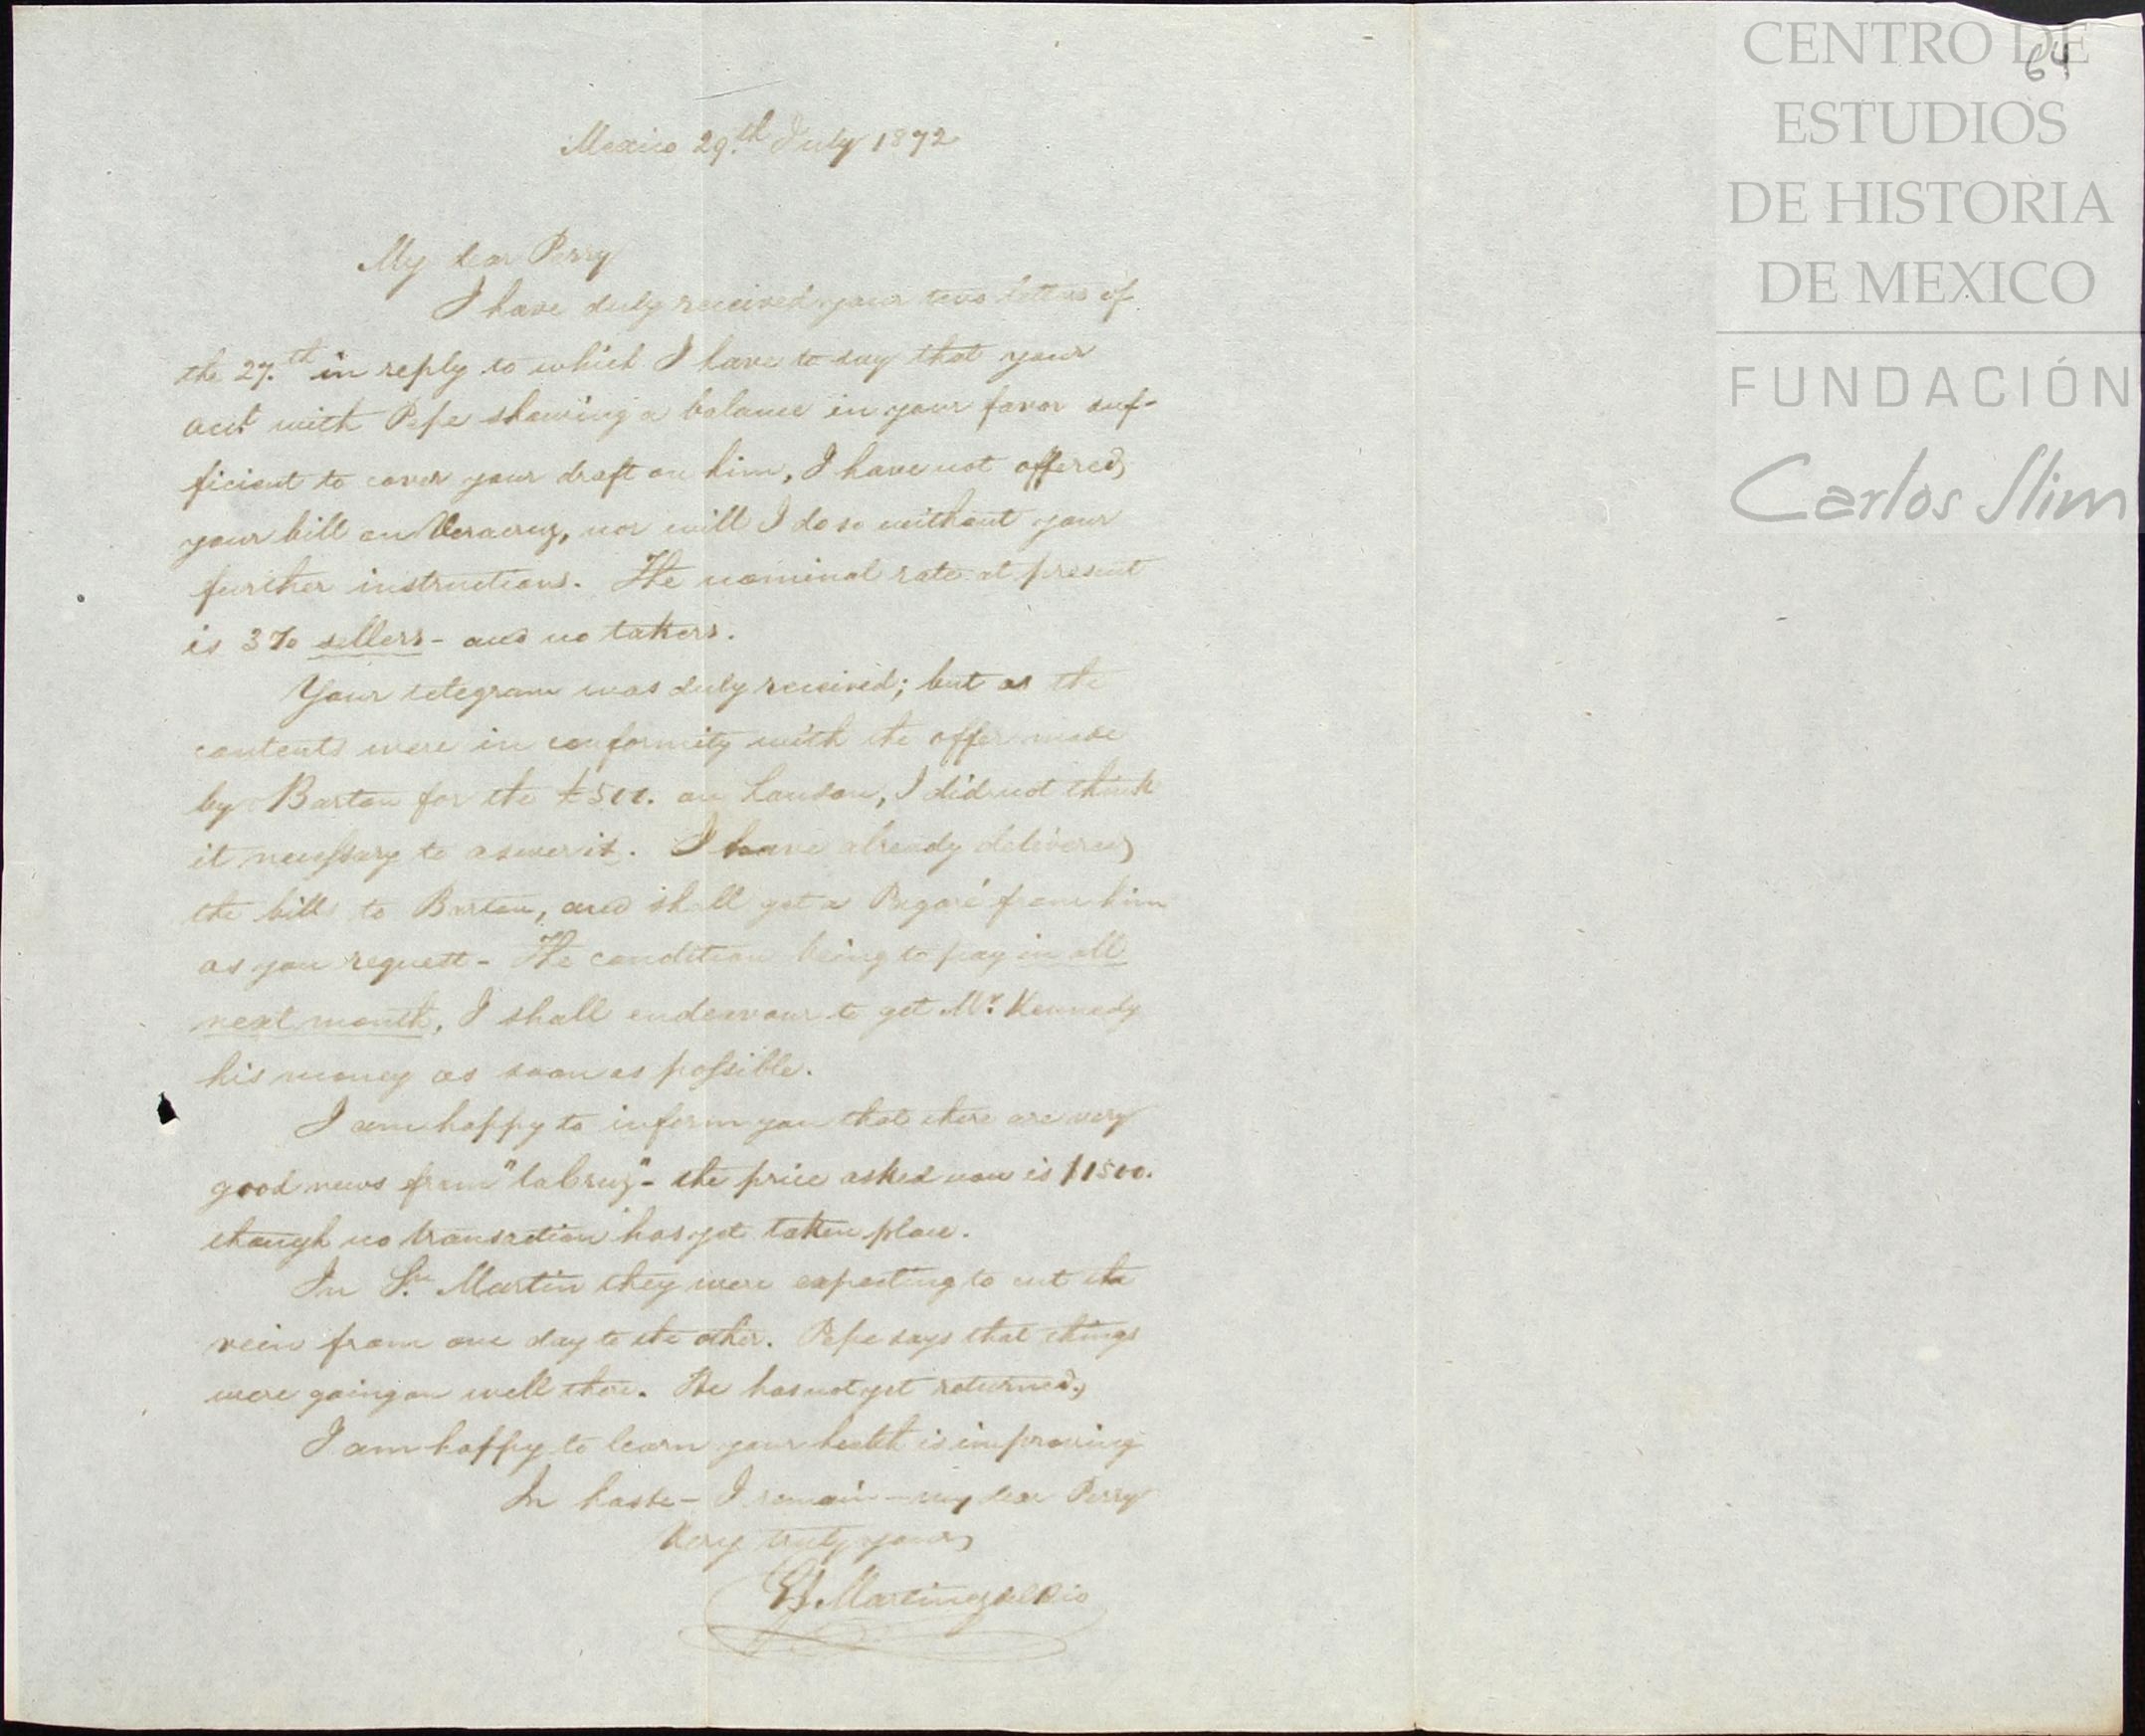 64
CENTRO DE
ESTUDIOS
DE HISTORIA
DE MEXICO
FUNDACIÓN
Carlos Slim
Mexico 29.th July 1872
My dear Perry
I have duly received your two letters of
the 27.th in reply to which I have to say that your
acct with Pepe showing a balance in your favor suf-
ficient to cover your draft on him, I have not offered
your bill on Veracruz, nor will I do so without your
further instructions. The nominal rate at present
is 3% sellers - and no takers.
Your telegram was duly received; but as the
contents were in conformity with the offer made
by Barton for the £500. on London, I did not think
it necessary to aswer it. I have already delivered
the bill to Barton, and shall get a Pagaré from him
as you request - The condition being to pay in all
next month, I shall endeavour to get Mr. Kennedy
his money as soon as possible.
I am happy to inform you that there are very
good news from "la Cruz" - the price asked now is $1500.
though no transaction has yet taken place.
In Sn. Martin they were expecting to cut the
vein from one day to the other. Pepe says that things
were going on well there. He has not yet returned,
I am happy to learn your health is improving
In haste - I remain - my dear Perry
Very truly yours
Martinez del Rio